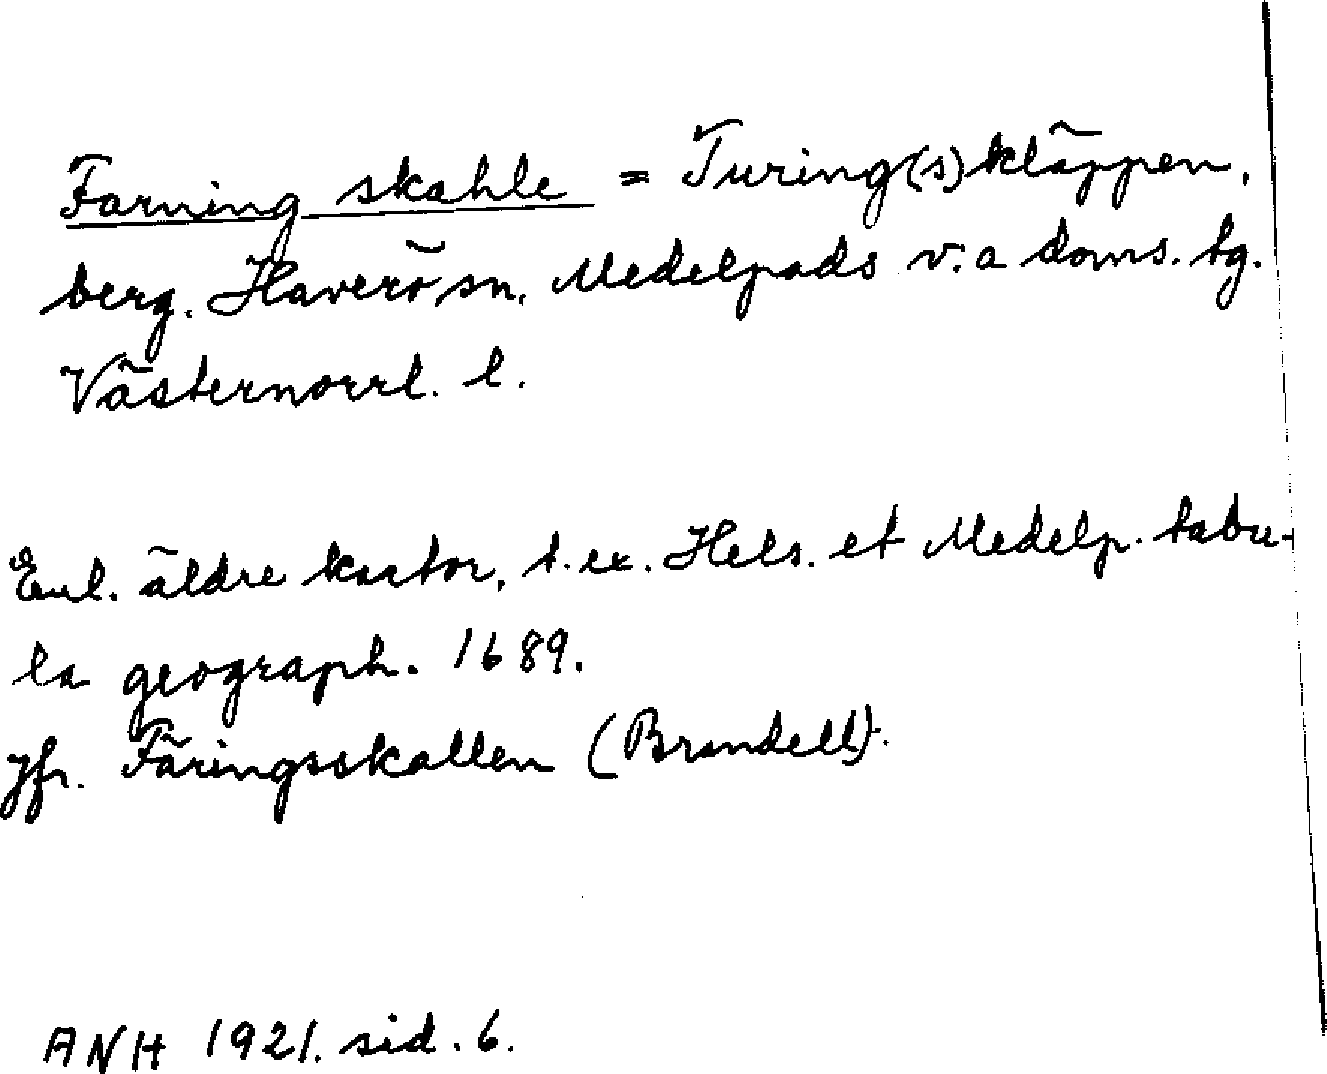 Farning skahle = Turing(s)kläppen,
berg. Haverö sn. Medelpads v:a doms. tg.
Västernorrl. l.
Enl. äldre kartor, t. ex. Hels. et Medelp. tabu-
la geograph. 1689.
Jfr. Färingsskallen (Brundell).
ANH 1921. sid. 6.